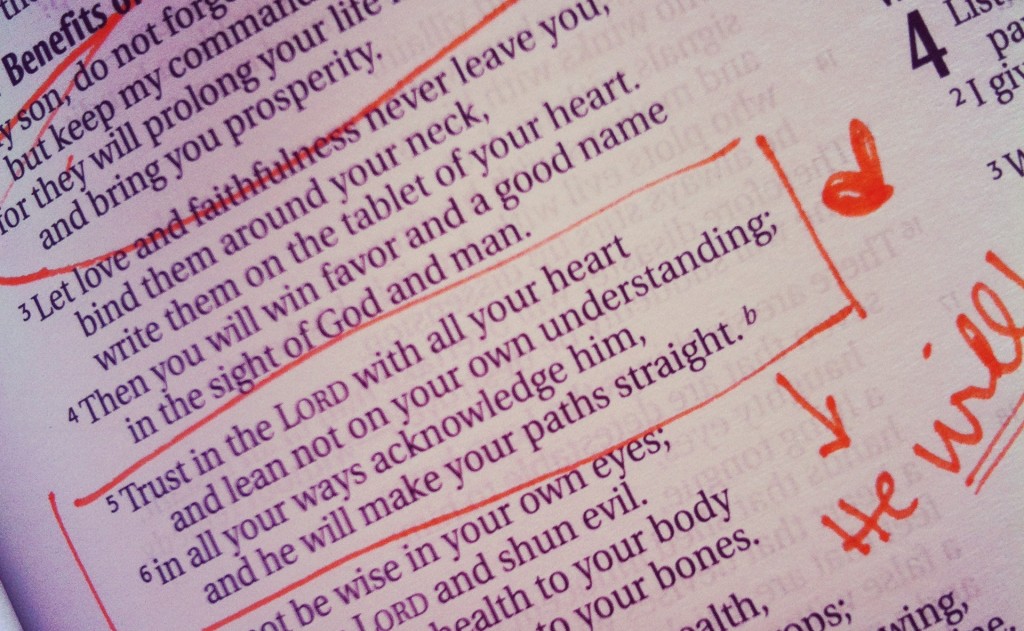 Benefits
son, do not
but keep my
for they will prolong your life
and bring you prosperity.
3 Let love and faithfulness never leave you;
bind them around your neck,
write them on the tablet of your heart.
4 Then you will win favor and a good name
in the sight of God and man.
5 Trust in the LORD with all your heart
and lean not on your own understanding;
6 in all your ways acknowledge him,
and he will make your paths straight. b
be wise in your own eyes;
LORD and shun evil.
to your body
to your bones.
4
2 I
3
He will